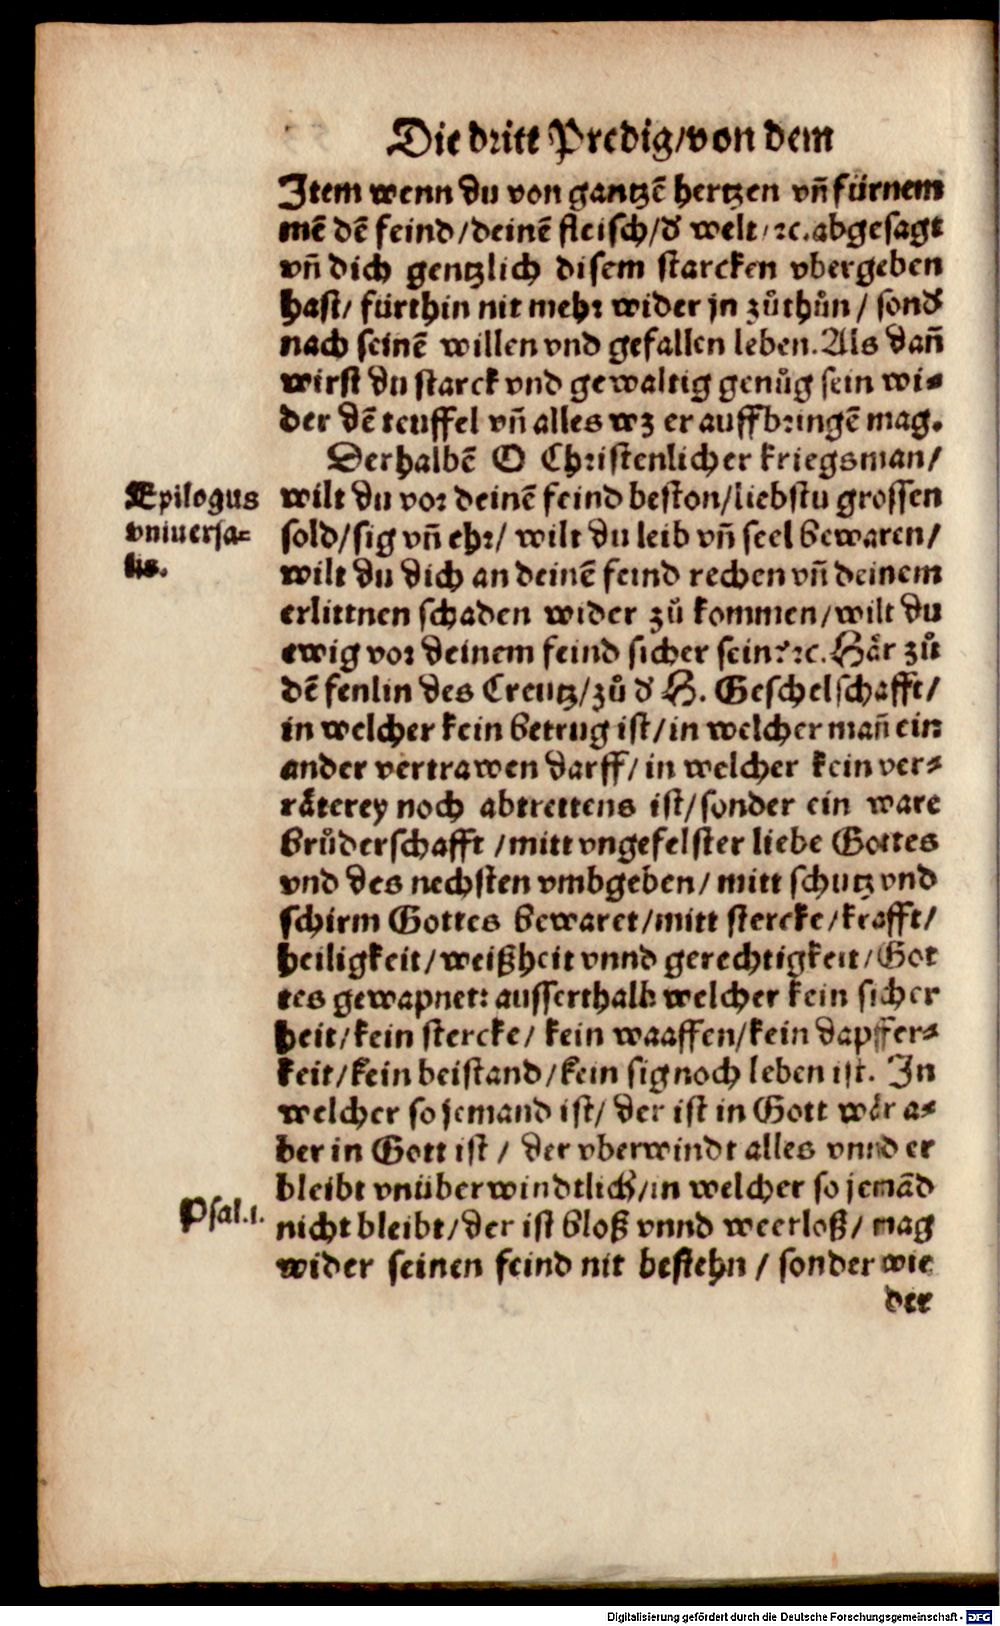 Die dritt Predig/von dem
Item wenn du von gantzē hertzen vn̄ fürnem
mē dē feind/deinē fleisch/d' welt/ꝛc.abgesagt
vn̄ dich gentzlich disem starcken vbergeben
hast/ fürthin nit mehr wider jn zůthůn/ sond'
nach seinē willen vnd gefallen leben. Als dan̄
wirst du starck vnd gewaltig genůg sein wi-
der dē teuffel vn̄ alles wz er auffbringē mag.
Derhalbē O Christenlicher kriegsman/
Epilogus
vniuersa-
lis.
wilt du vor deinē feind beston/liebstu grossen
sold/sig vn̄ ehr/ wilt du leib vn̄ seel bewaren/
wilt du dich an deinē feind rechen vn̄ deinem
erlittnen schaden wider zů kommen/wilt du
ewig vor deinem feind sicher sein?ꝛc. Här zů
dē fenlin des Creutz/zů d' H. Geschelschafft/
in welcher kein betrug ist/in welcher man̄ ein
ander vertrawen darff/ in welcher kein ver-
räterey noch abtrettens ist/sonder ein ware
brůderschafft /mitt vngefelster liebe Gottes
vnd des nechsten vmbgeben/ mitt schutz vnd
schirm Gottes bewaret/mitt stercke/krafft/
heiligkeit/weißheit vnnd gerechtigkeit/Got
tes gewapnet: ausserthalb welcher kein sicher
heit/kein stercke/ kein waaffen/kein dapffer-
keit/kein beistand/kein sig noch leben ist. In
welcher so jemand ist/ der ist in Gott wär a-
ber in Gott ist / der vberwindt alles vnnd er
bleibt vnüberwindtlich/in welcher so jemād
Psal.1.
nicht bleibt/der ist bloß vnnd weerloß/ mag
wider seinen feind nit bestehn / sonder wie
der
Digitalisierung gefördert durch die Deutsche Forschungsgemeinschaft - DFG